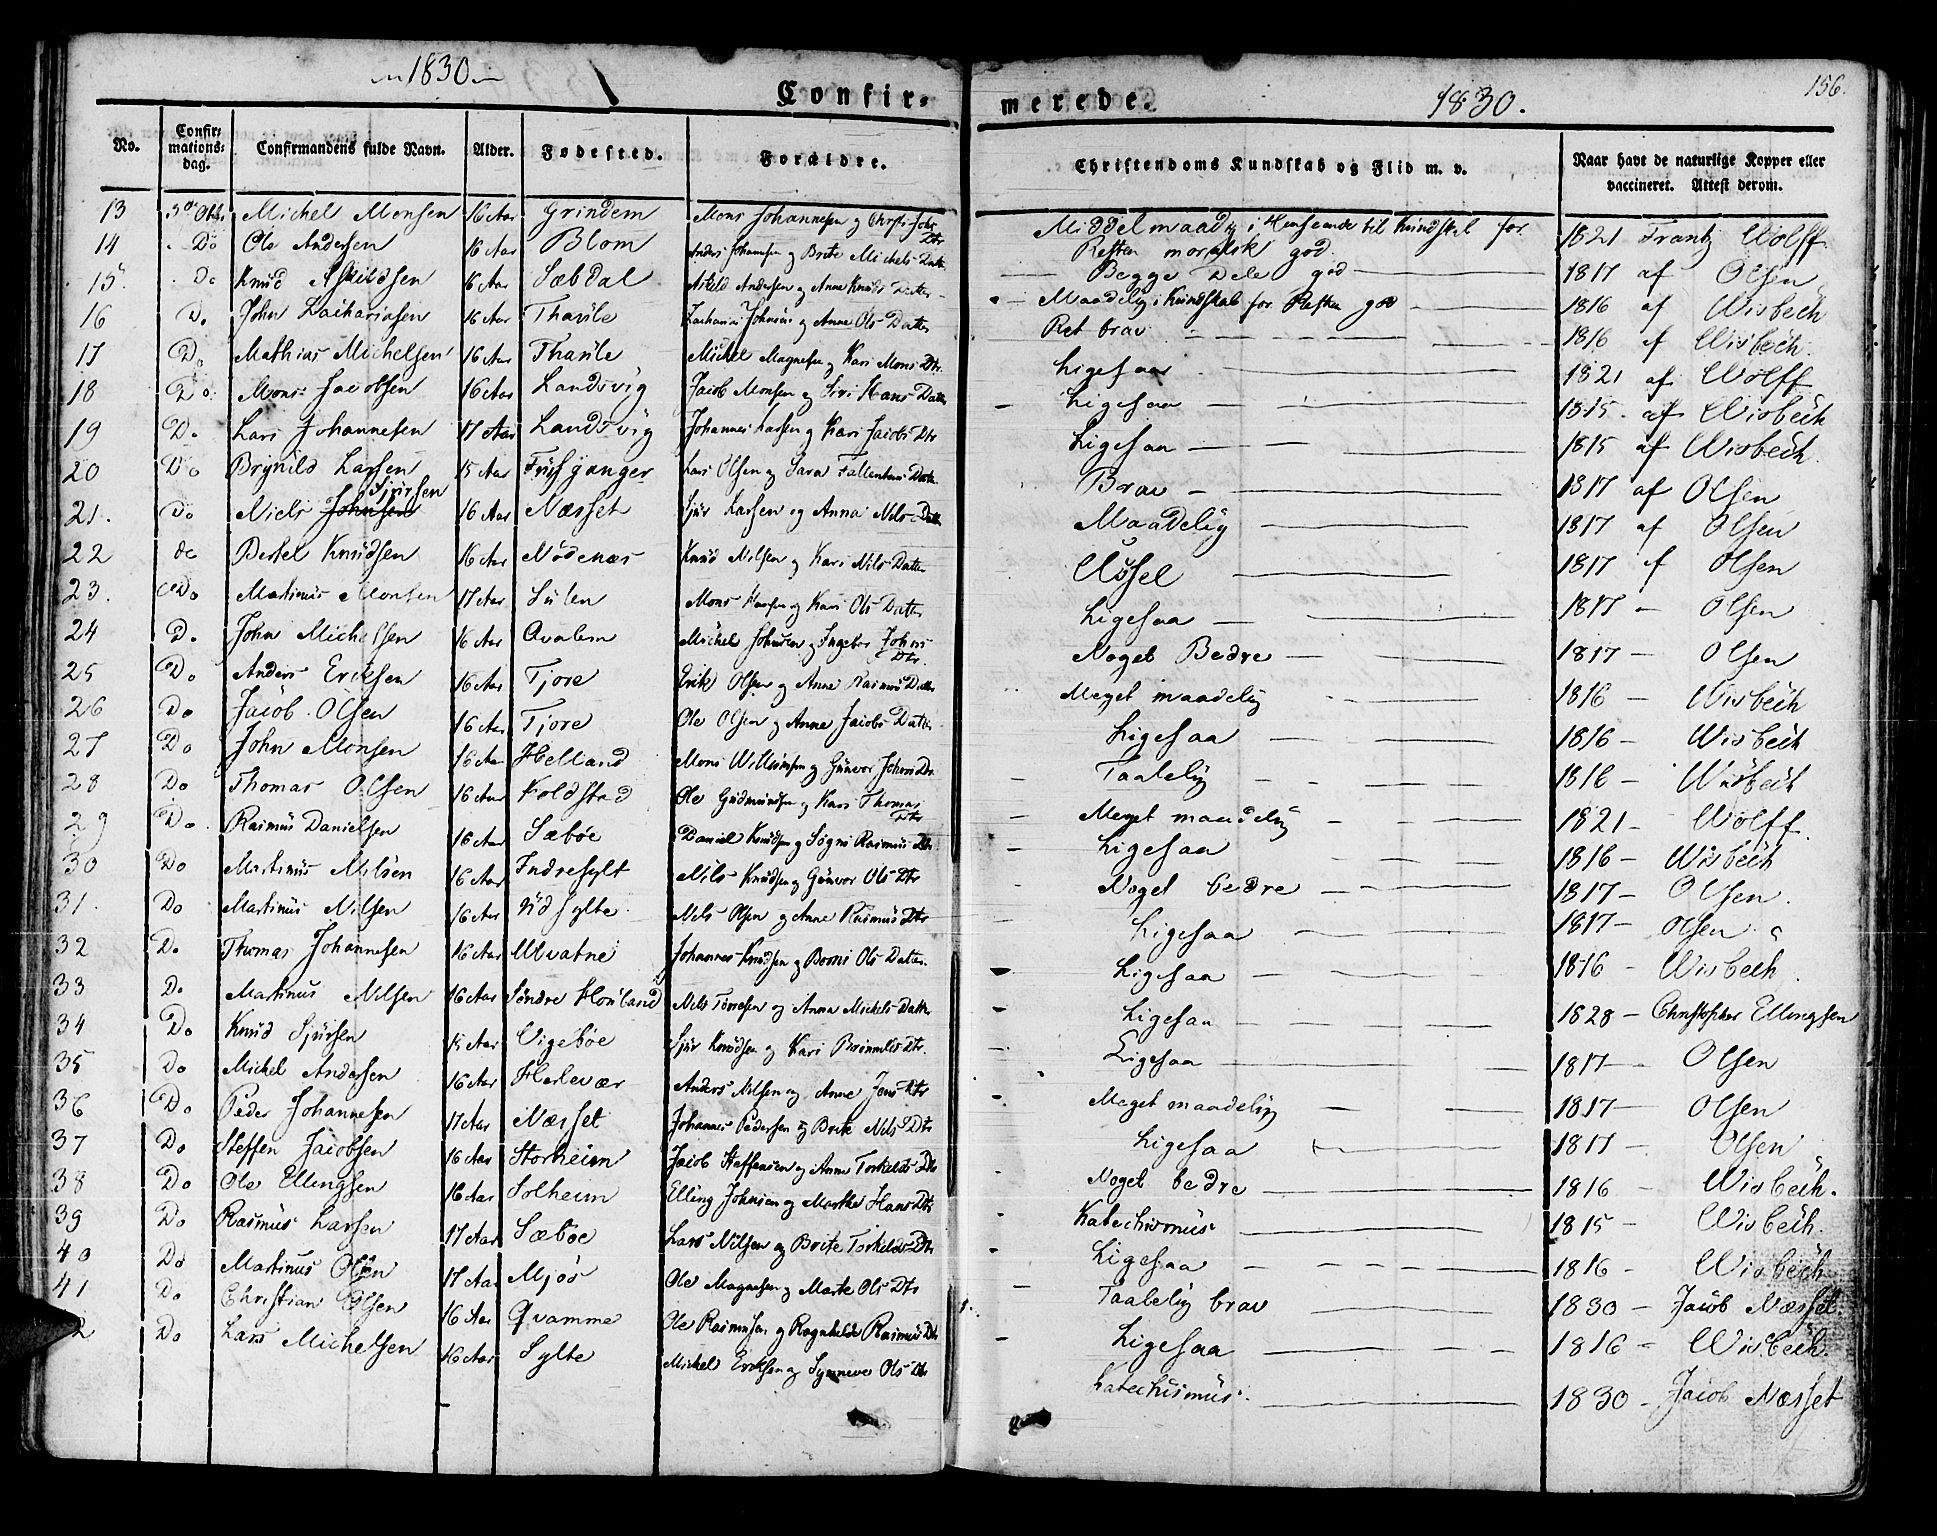 1830
Confir-
No. Confir-mations-dag. Confirmandens fulde Navn. Alder. Fødested. Forældre.
13 Michel Monsen 16 Aar Grindem Mons Johannesen og
14 Do Ole Andersen 16 Aar Blom Anders Johannesen og Brite Michels Datt
15 Do Knud Askildsen 16 Aar Sæbdal Askild Andersen og Anne Knuds Datter
16 Do John Zachariasen 16 Aar Thaule Zacharias Johnsen og Anne Ols Datter
17 Do Mathias Michelsen 16 Aar Thaule Michel Magnesen og Kari Mons Dtr
18 Do Mons Jacobsen 16 Aar Landsvig Jacob Monsen og Siri Hans Datter
19 Do Lars Johannesen 17 Aar Landsvig Johannes Larsen og Kari Jacobs Dtr
20 Do Brynild Larsen 15 Aar Lars Olsen og Sara
21. Do Niels Johnsen Sjursen 16 Aar Næsset Sjur Larsen og Anna Nils Datt
22 do Bertel Knudsen 16 Aar Nødenæs Knud Nilsen og Kari Nils Datter
23. Do Martinus Monsen 17 Aar Sulen Mons Hansen og Kari Ols Datter
24 Do John Michelsen 16 Aar Qvalem Michel Johnsen og Ingebor Johns Dtr.
25 Do Anders Eriksen 16 Aar Tjore Erik Olsen og Anne Rasmus Datter
26 Do Jacob Olsen 16 Aar Tjore Ole Olsen og Anne Jacobs Datter
27 Do John Monsen 16 Aar Helland Mons Willumsen og Gunvor Johns Dtr
28 Do Thomas Olsen 16 Aar Koldstad Ole Gudmundsen og Kari Thomas Dtr
29 Do Rasmus Danielsen 16 Aar Sæbøe Daniel Knudsen og Søgni Rasmus Dtr
30 Do Martinus Nilsen 16 Aar Indresylt Nils Knudsen og Gunvor Ols Dtr
31. Do Martinus Nilsen 16 Aar Udsylte Nils Olsen og Anne Rasmus Dtr
32 Do Thomas Johannesen 16 Aar Ulvatne Johannes Knudsen og Borni Ols Datter.
33 Do Martinus Nilsen 16 Aar Søndre Hovland Nils Tørresen og Anna Michels Datter
34 Do Knud Sjursen 15 Aar Vigebøe Sjur Knudsen og Kari Brinnilds Dtr.
35 Do Michel Andersen 16 Aar Herlevær Anders Nilsen og Anne Jens Dtr
36 Do Peder Johannesen 17 Aar Næsset Johannes Pedersen og Brite Nils Dtr
37 Do Steffen Jacobsen 16 Aar Storheim Jacob Steffensen og Anne Torkelds Dtr
38 Do Ole Ellingsen 16 Aar Solheim Elling Johnsen og Marthe Hans Dtr
39 Do Rasmus Larsen 17 Aar Sæbøe Lars Nilsen og Brite Torkelds Dtr
40 Do Martinus Olsen 17 Aar Mjøs Ole Magnesen og Marte Ols Dtr
41 Do Christian Olsen 16 Aar Qvamme Ole Rasmusen og Ragnhilde Rasmus Dtr
2 Do Lars Michelsen 16 Aar Sylte Michel Eriksen og Synneve Ols Dtr
merede.
1830.
156.
Christendoms Kundskab og Flid m. v. Naar havt de naturlige Kopper eller vaccineret. Attest derom.
Middelmaadig i Henseende til Kundskab for Resten moralsk god. 1821 Frantz Wolff
Begge Dele god 1817 af Olsen
Maadelig i Kundskab for Resten god 1816 af Wisbech
Ret brav 1816 af Wisbech.
Ligesaa 1821 af Wolff
Ligesaa 1815. af Wisbech
Ligesaa 1815 af Wisbech
Brav 1817 af Olsen
Maadelig 1817 af Olsen
Ussel 1817 af Olsen
Ligesaa 1817 - Olsen
Noget Bedre 1817 - Olsen
Meget maadelig 1816 - Wisbech
Ligesaa 1816 - Wisbech
Taalelig 1816 - Wisbech
Meget maadelig 1821 - Wolff.
Ligesaa 1816 - Wisbech
Noget bedre 1817 - Olsen.
Ligesaa 1817 - Olsen
Ligesaa 1816 - Wisbech.
Ligesaa 1828 - Christopher Ellingsen
Ligesaa 1817 - Olsen
Meget maadelig 1817 - Olsen
Ligesaa 1817 - Olsen
Noget bedre 1816 - Wisbech.
Katechismus 1815 - Wisbech.
Ligesaa 1816 - Wisbech
Taalelig brav 1830 - Jacob Næsset
Ligesaa 1816 - Wisbech.
Katechismus. 1830 - Jacob Næsset